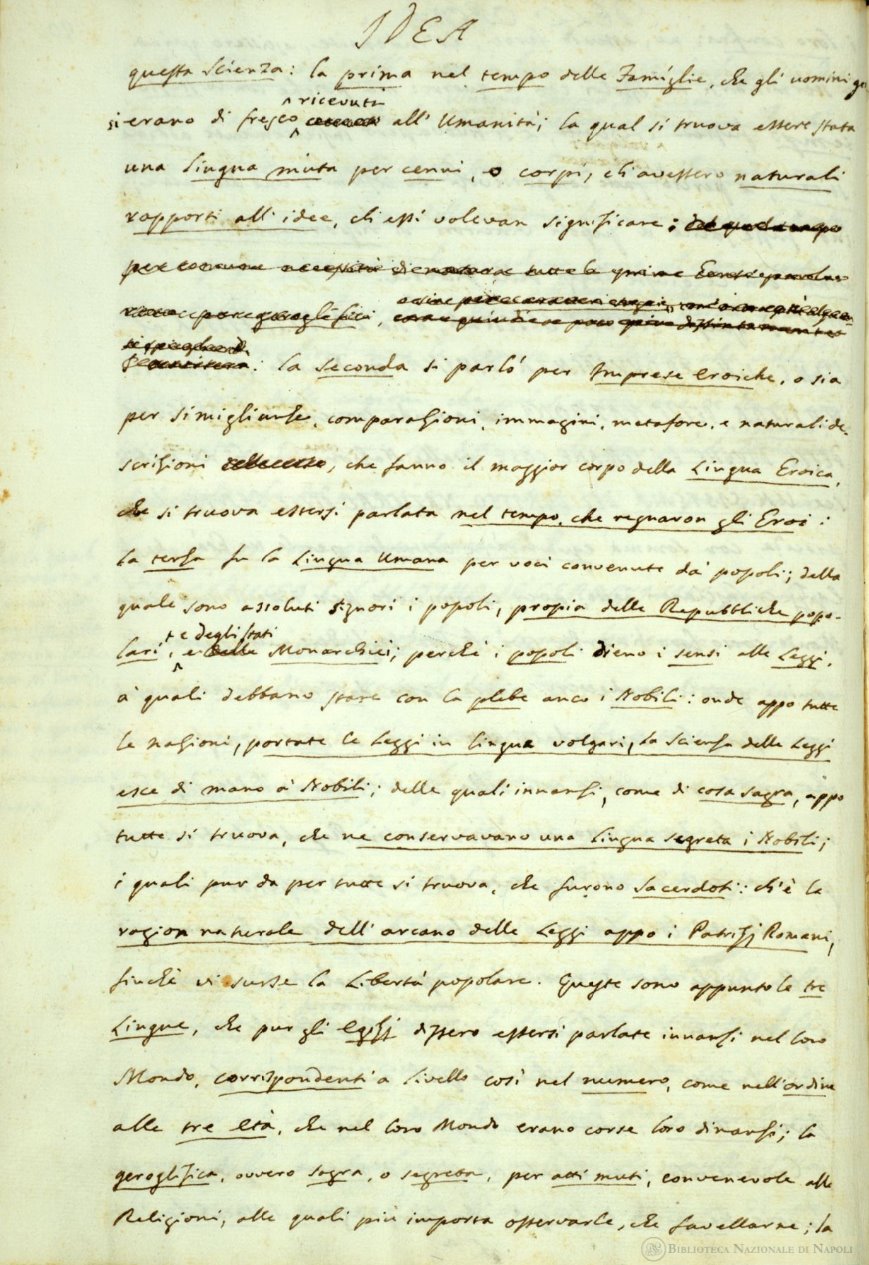 IDEA
questa Scienza: la prima nel tempo delle Famiglie, che gli uomini ge
ricevuti
si erano di fresco all' Umanità; la qual si truova essere stata
una lingua muta per cenni, o corpi, ch'avessero naturali
rapporti all' idee, ch'essi volevan significare:
per comune necessità di natura tutte le prime
geroglifici,
: la seconda si parlò per Imprese eroiche, o sia
per simiglianze, comparazioni, immagini, metafore, e naturali de-
scrizioni, che fanno il maggior corpo della Lingua Eroica,
che si truova essersi parlata nel tempo, che regnaron gli Eroi:
la terza fu la Lingua Umana per voci convenute da' popoli; della
quale sono assoluti signori i popoli, propia delle Repubbliche popo-
e degli Stati
lari, Monarchici; perchè i popoli dieno i sensi alle Leggi,
a' quali debbano stare con la plebe anco i Nobili: onde appo tutte
le nazioni, portate le Leggi in lingua volgari, la Scienza delle Leggi
esce di mano a' Nobili; delle quali innanzi, come di cosa sagra, appo
tutte si truova, che ne conservavano una Lingua segreta i Nobili;
i quali pur da per tutte si truova, che furono Sacerdoti: ch'è la
ragion naturale dell' arcano delle Leggi appo i Patrizj Romani,
finchè vi surse la Libertà popolare. Queste sono appunto le tre
Lingue, che pur gli Egizj dissero essersi parlate innanzi nel loro
Mondo, corrispondenti a livello così nel numero, come nell'ordine
alle tre età, che nel loro Mondo erano corse loro dinanzi; la
geroglifica, ovvero sagra, o segreta, per atti muti, convenevole alle
Religioni, alle quali più importa osservarle, che favellarne; la
BIBLIOTECA NAZIONALE DI NAPOLI